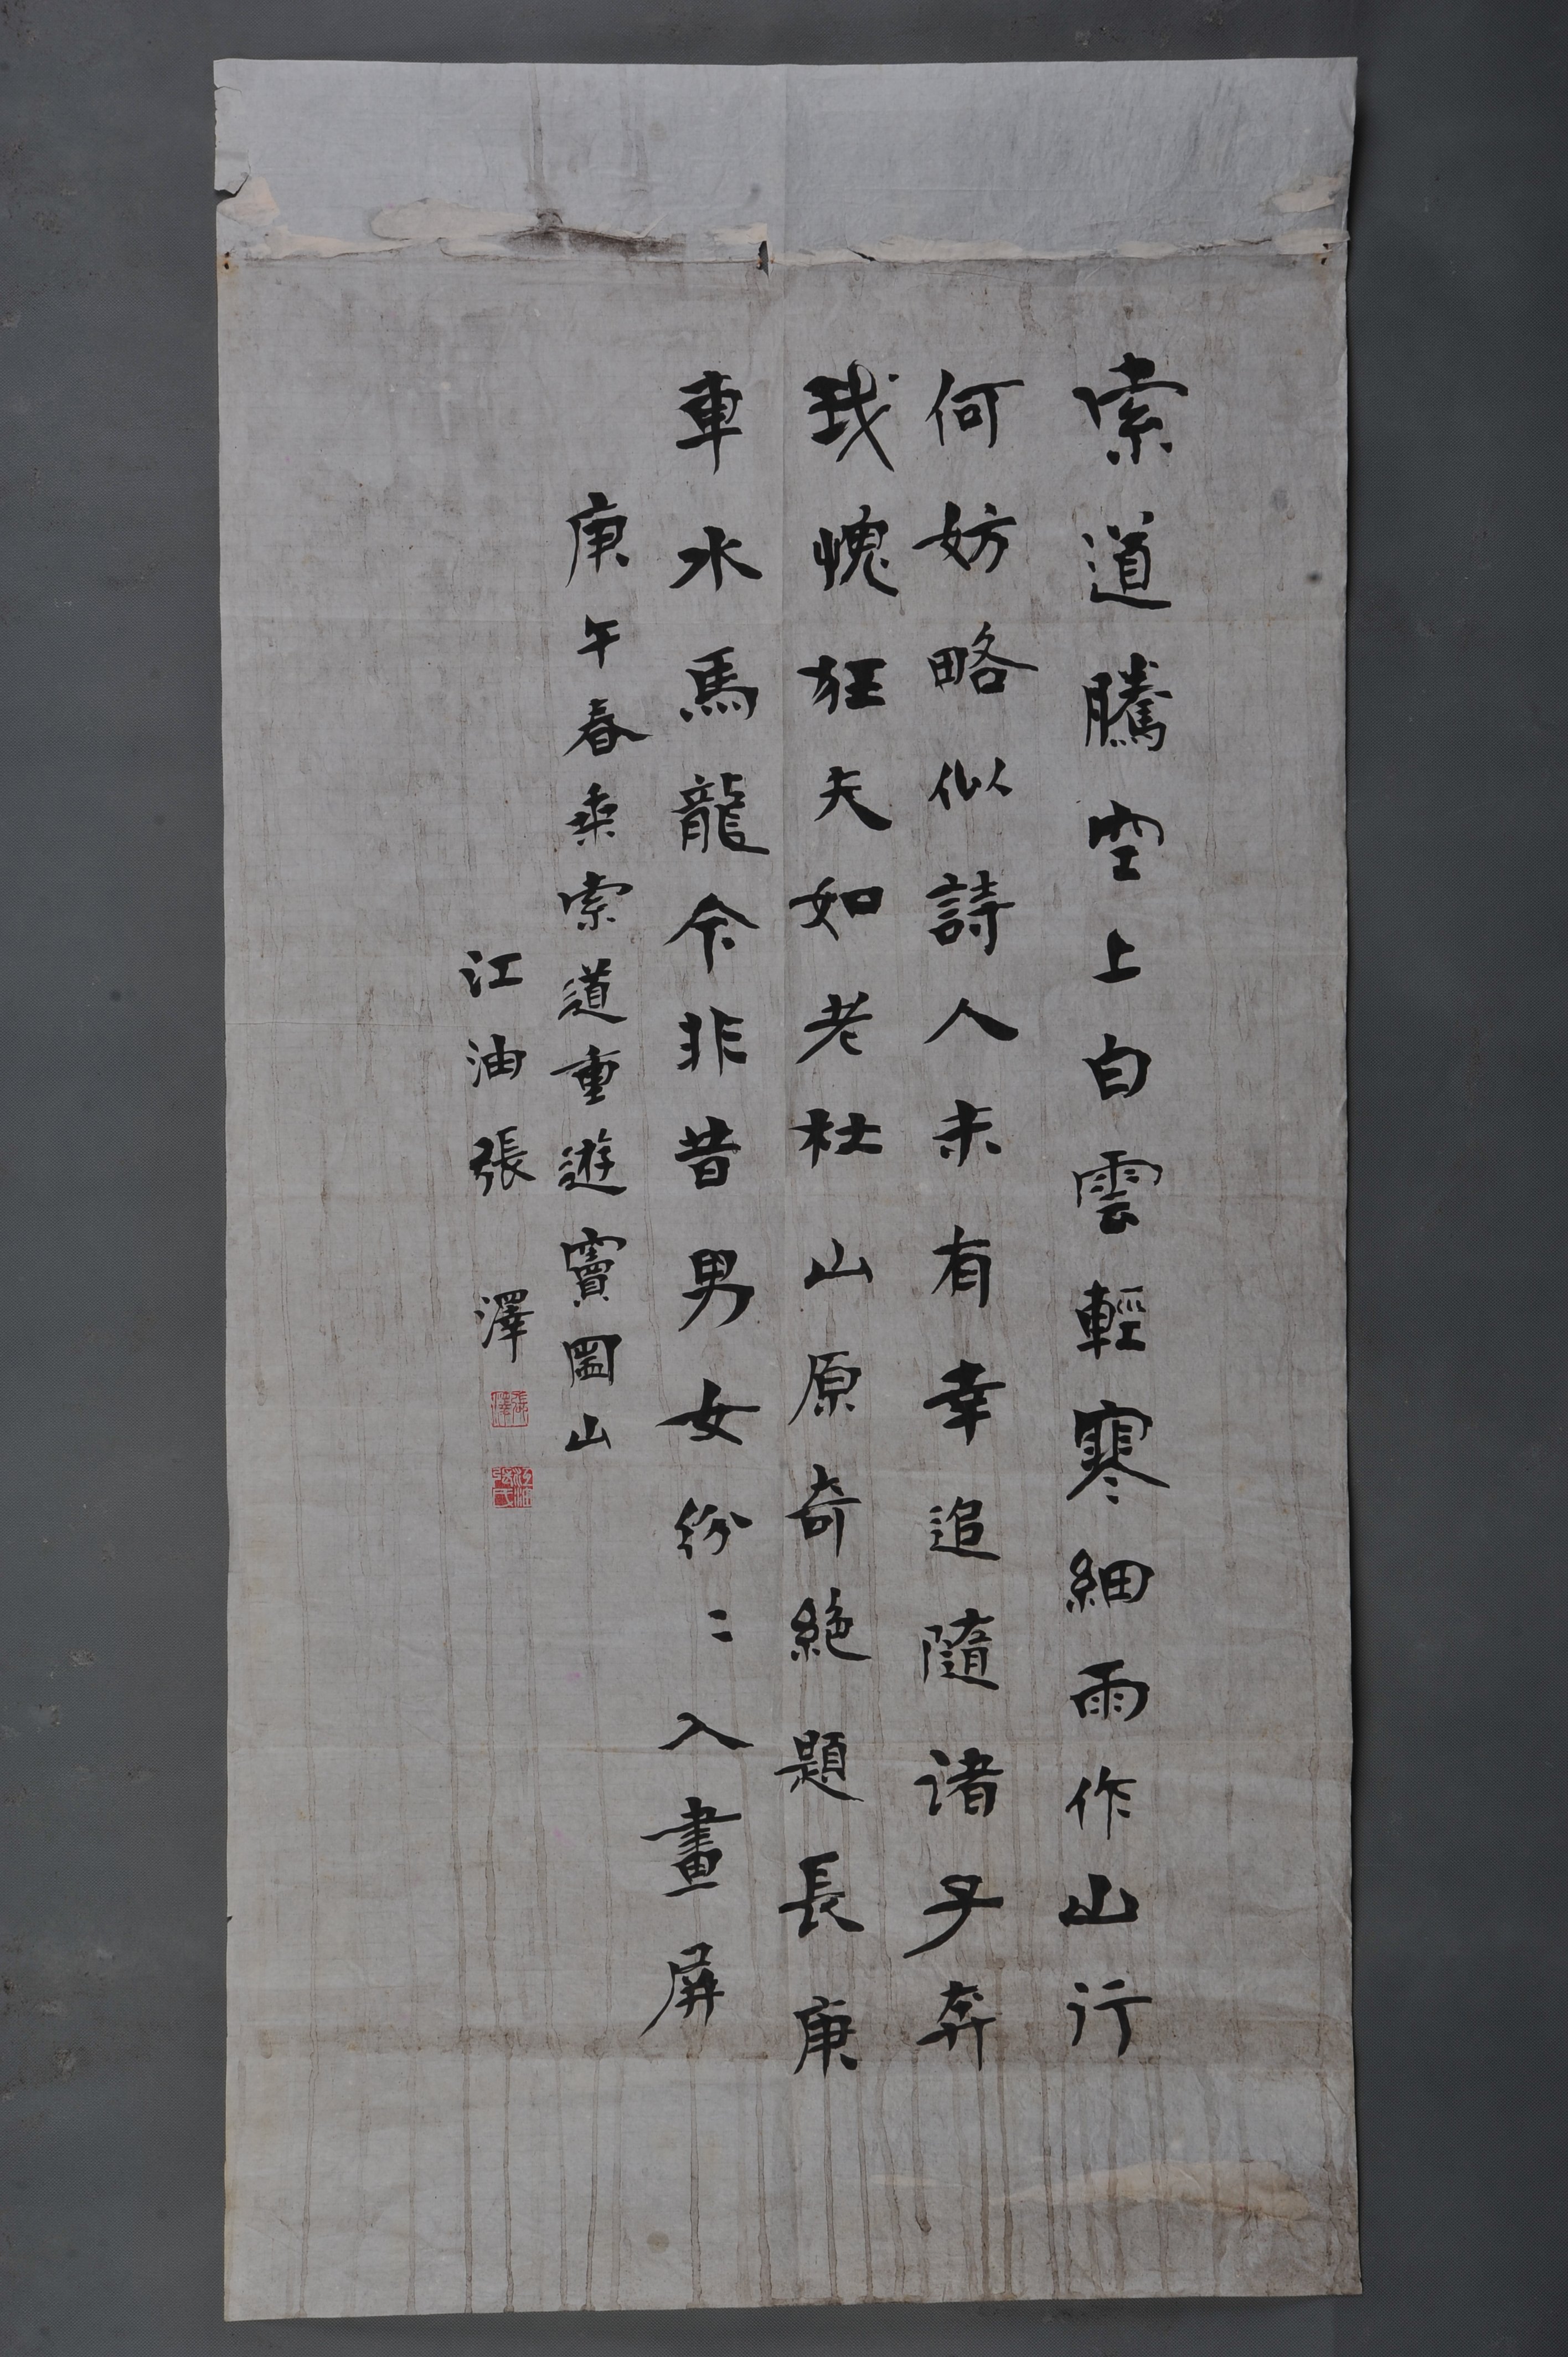 索道騰空上白雲輕寒細雨作山行
何妨略似詩人未有幸追隨诸子奔
我愧狂夫如老杜山原奇絶題長庚
車水馬龍今非昔男女紛〻入畫屏
庚午春乘索道重遊竇圌山
江油張澤
張澤
江油張氏